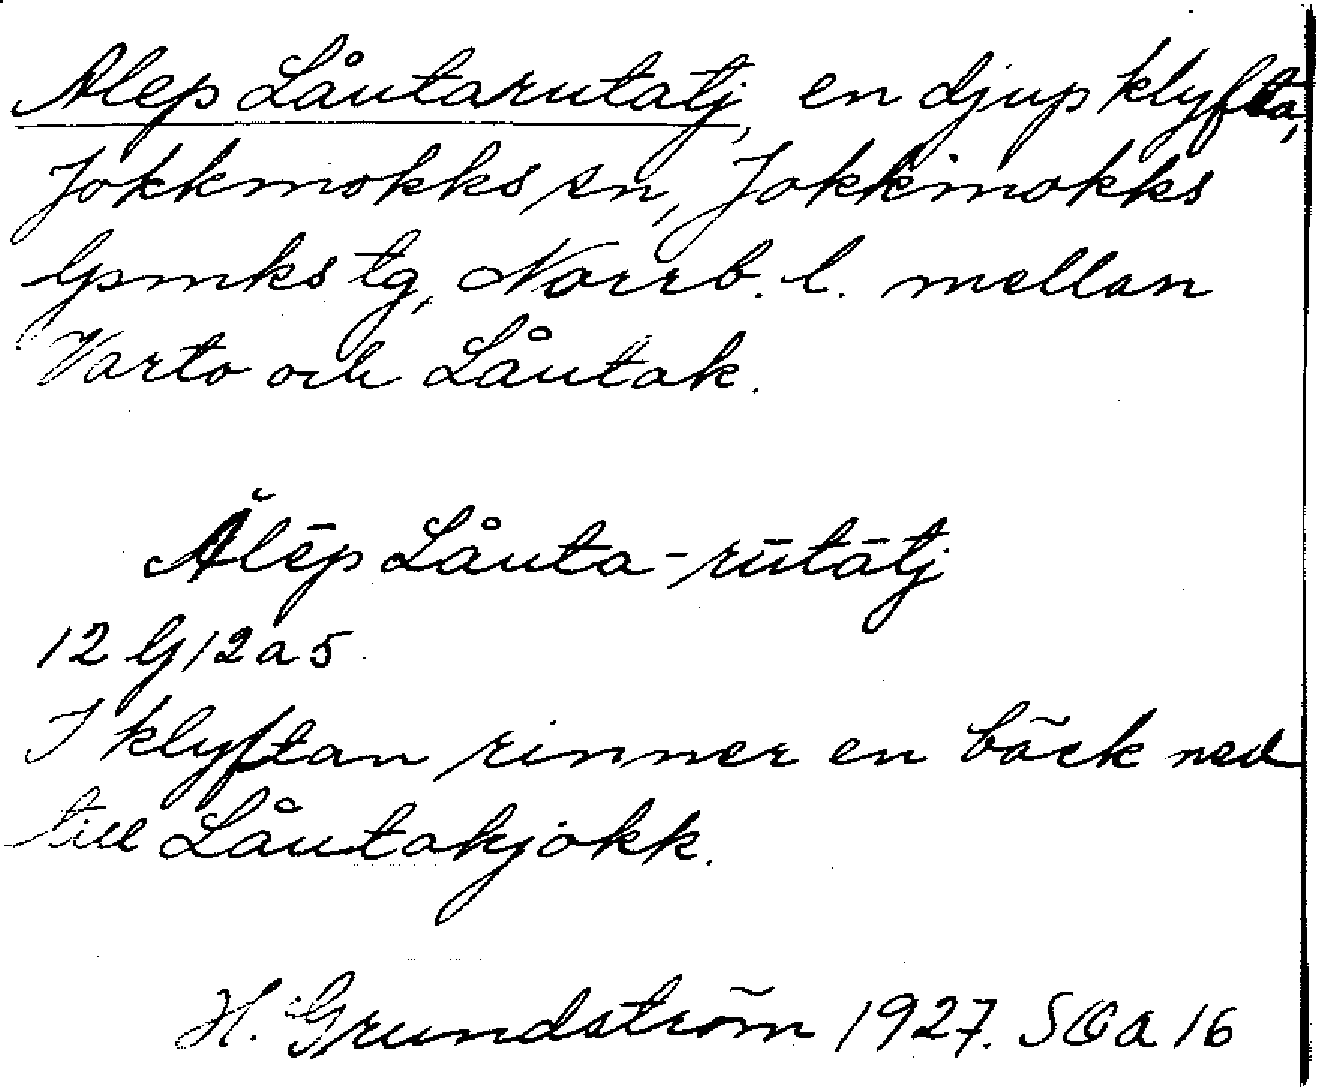 Alep Låutarutatj, en djup klyfta,
Jokkmokks sn, Jokkmokks
lpmks tg, Norrb. l. mellan
Varto och Låutak.
Ălēp Låuta-rūtātj
12 G 12 a 5
I klyftan rinner en bäck ned
till Låutakjokk.
H. Grundström 1927. SOA 16